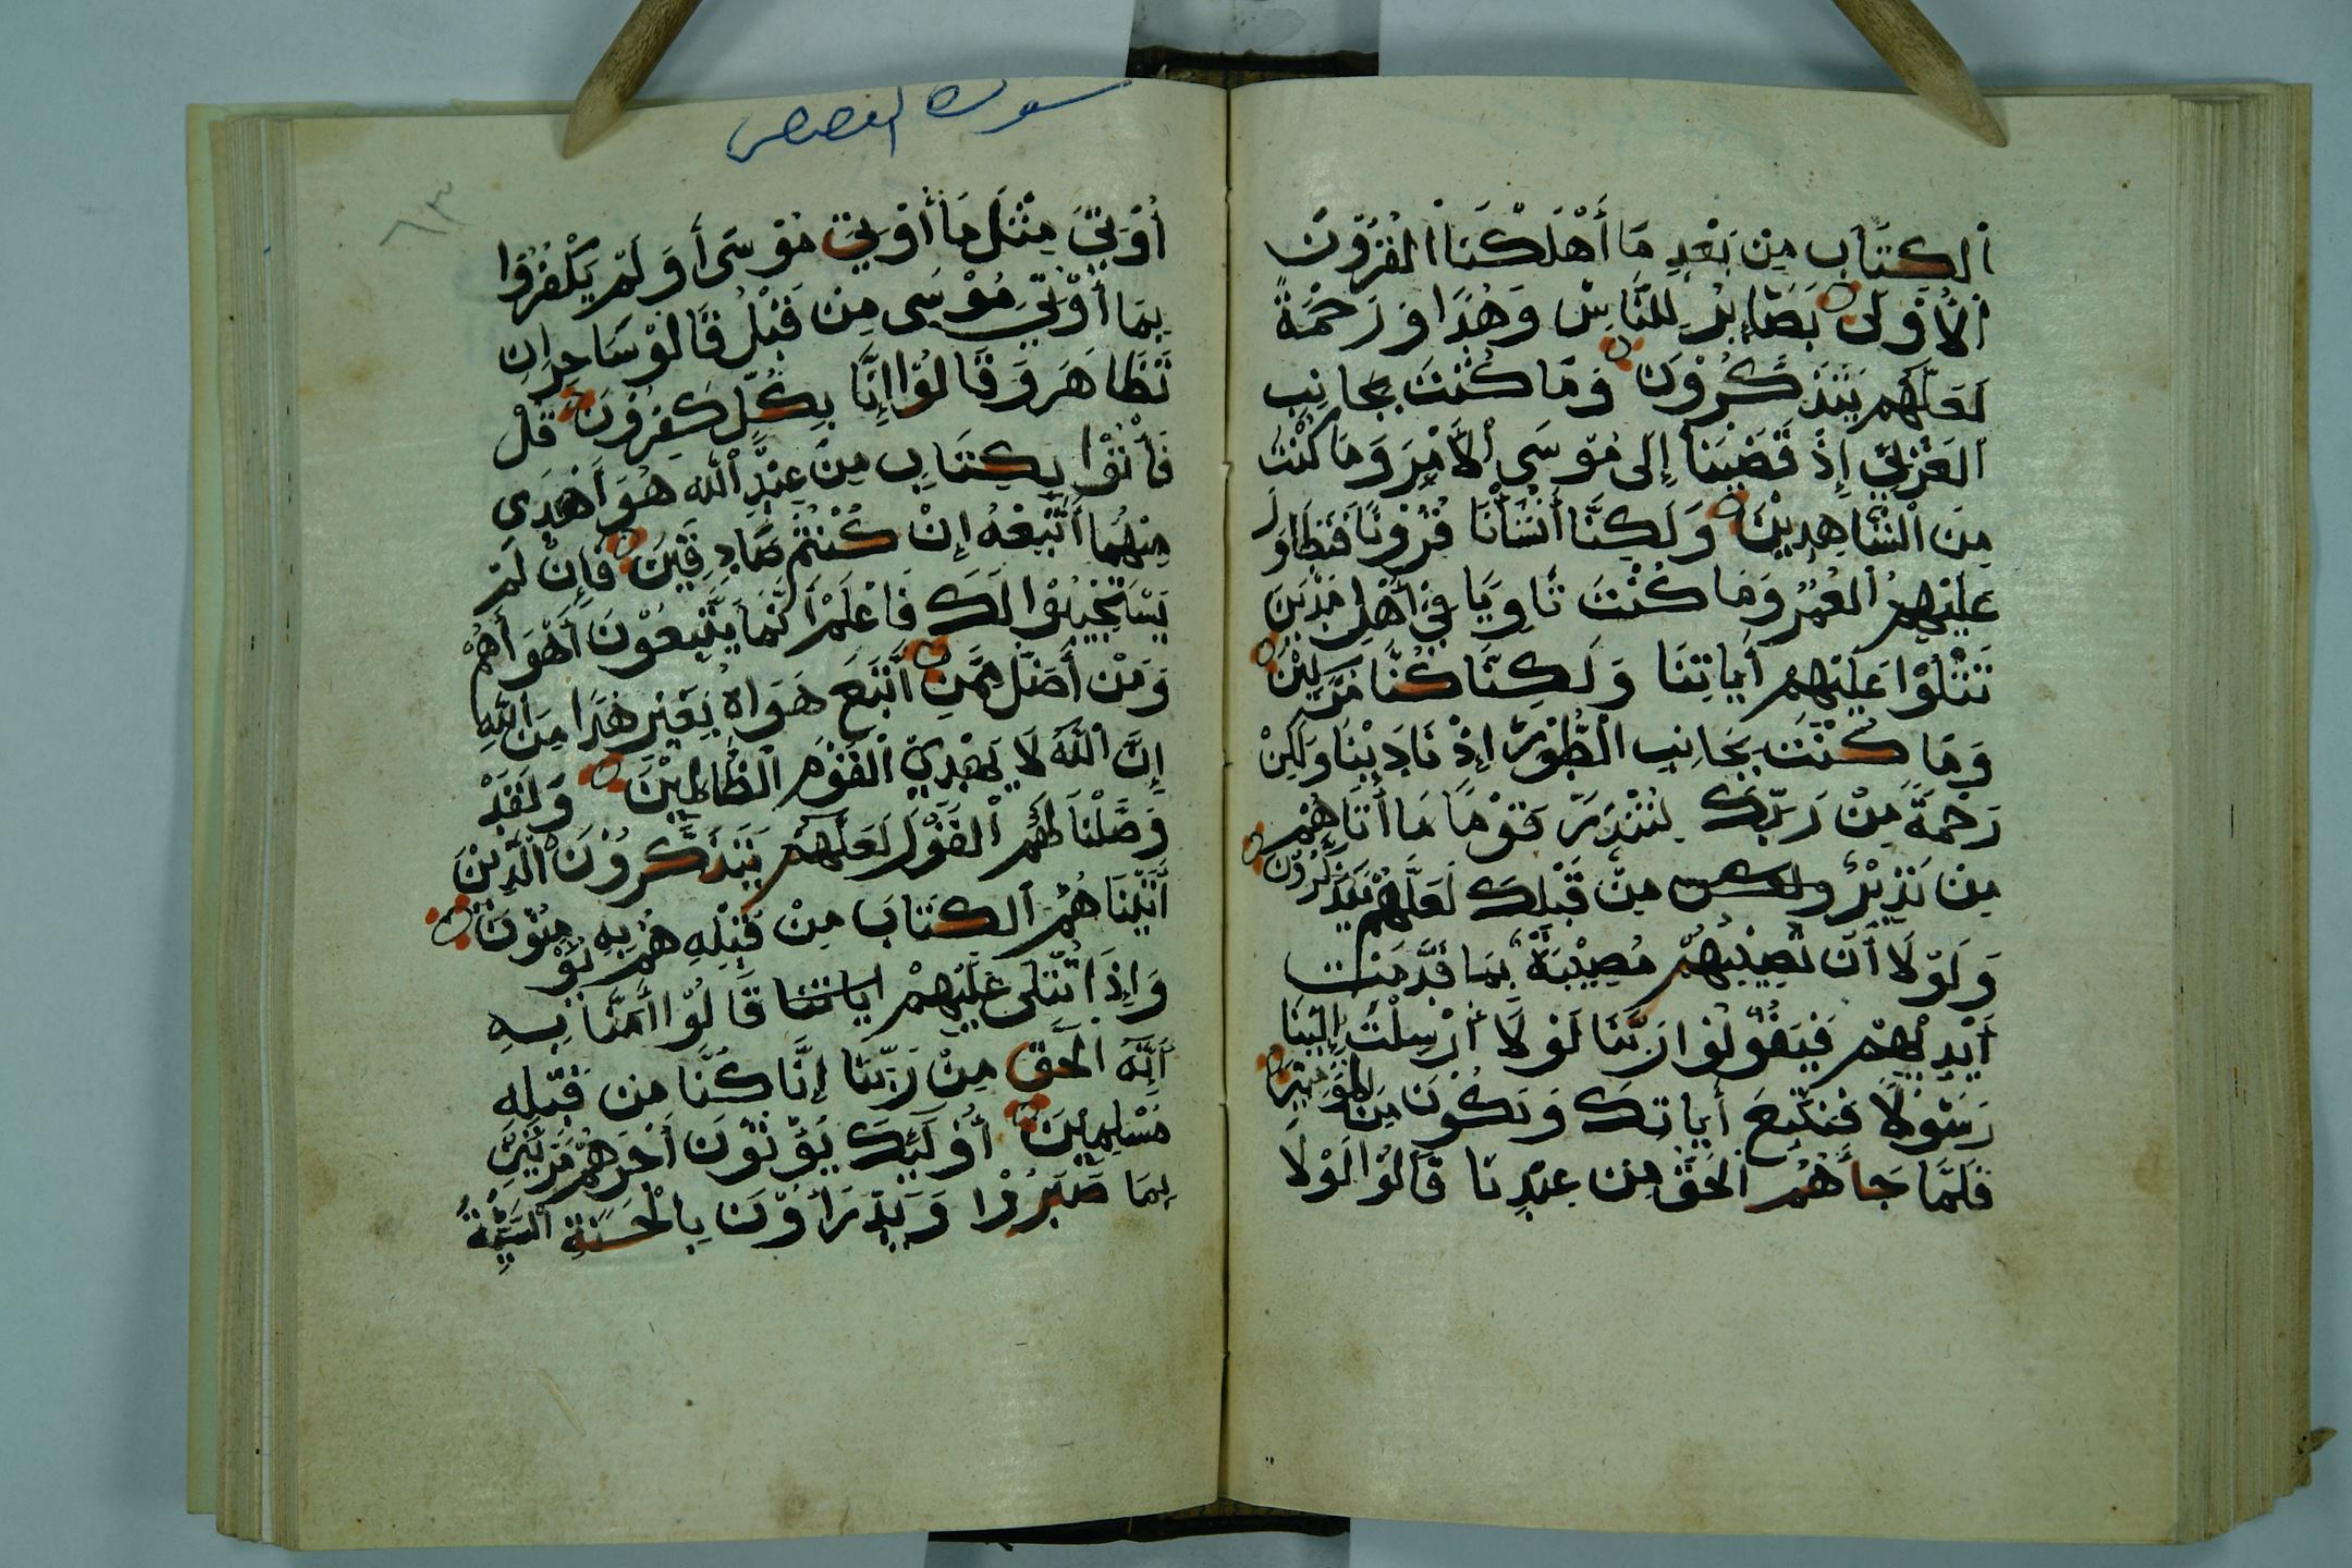 الكِتَابَ مِنْ بَعْدِ مَا أَهْلَكْنَا القُرُونَ
الأُوْلَى بَصَايِرَ لِلنَّاسِ وَهُدًا وَرَحْمَةً
لَعَلَّهُم يَتَذَكَّرُوْنَ وَمَا كُنْتَ بِجَانِبِ
الغَرْبِيِّ إِذْ قَضَيْنَا إِلَى مُوْسَى الأَمْرَ وَمَا كُنْتَ
مِنَ الشَّاهِدِيْنَ وَلَكِنَّا أَنْشَأْنَا قُرُوْنًا فَتَطَاوَلَ
عَلَيْهِمُ العُمُرُ وَمَا كُنْتَ ثَاوِيًا فِيْ أَهْلِ مَدْيَنَ
تَتْلُوْا عَلَيْهِم أَيَاتِنَا وَلَكِنَّا كُنَّا مُرْسِلِيْنَ
وَمَا كُنْتَ بِجَانِبِ الطُّوْرِ إِذْ نَادَيْنَا وَلَكِنْ
رَحْمَةً مِنْ رَبِّكَ لِتُنْذِرَ قَوْمًا مَا أَتَاهُم
مِنْ نَذِيْرٍ ولكن مِنْ قَبْلِكَ لَعَلَّهُمْ يَتَذَكَّرُوْنَ
وَلَوْلَا أَنْ تُصِيْبَهُمْ مُصِيْبَةٌ بِمَا قَدَّمَتْ
أَيْدِيْهِمْ فَيَقُوْلُوْا رَبَّنَا لَوْلَا أَرْسَلْتَ إِلَيْنَا
رَسُوْلًا فَنَتَّبِعَ أَيَاتِكَ وَنَكُوْنَ مِنَ المُؤمِنِيْنَ
فَلَمَّا جَاءَهُمُ الحَقُّ مِنْ عِنْدِنَا قَالُوْا لَوْلَا
سورة القصص
٦٣
أُوْتِيَ مِثْلَ مَا أُوْتِيَ مُوْسَى أَوَلَمْ يَكْفُرُوْا
بِمَا أُوْتِيَ مُوْسَى مِنْ قَبْلُ قَالُوْ سَاحِرَانِ
تَظَاهَرَ وَقَالُوْا إِنَّا بِكُلٍّ كَفِرُوْنَ قُلْ
فَأْتُوْا بِكِتَابٍ مِنْ عِنْدِ اللّهِ هُوَ أَهْدَى
مِنْهُمَا أَتَّبِعْهُ إِنْ كُنْتُمْ صَادِقِيْنَ فَإِنْ لَمْ
يَسْتَجِيْبُوْا لَكَ فَاعْلَمْ أَنَّمَا يَتَّبِعُوْنَ أَهْوَأَهُمْ
وَمَنْ أَضَلُّ مِمَّنِ اتَّبَعَ هَوَاهُ بِغَيْرِ هُدًا مِنَ اللّهِ
إِنَّ اللّهَ لَا يَهْدِيْ القَوْمَ الظَّالِمِيْنَ وَلَقَدْ
وَصَّلْنَا لَهُمُ القَوْلَ لَعَلَّهُمْ يَتَذَكَّرُوْنَ الَّذِيْنَ
أَتَيْنَاهُمُ الكِتَابَ مِنْ قَبْلِهِ هُمْ بِهِ يُؤْمِنُوْنَ
وَإِذَا تُتْلَى عَلَيْهِمْ اياتنا قَالُوْا أَمَنَّا بِهِ
أَنَّهُ الحَقُّ مِنْ رَبِّنَا إِنَّا كُنَّا مِنْ قَبْلِهِ
مُسْلِمِيْنَ أُوْلَئِكَ يُؤْتَوْنَ أَجْرَهُمْ مَرَّتَيْنِ
بِمَا صَبَرُوْا وَيَدْرَأُوْنَ بِالْحَسَنَةِ السَّيِّئَةَ